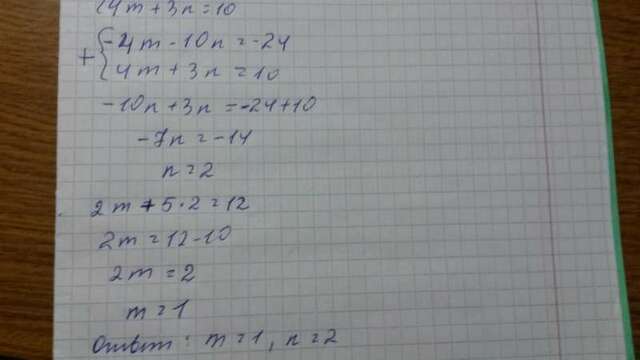 {4m+3n=10
+{-4m-10n=-24
4m+3n=10
-10n+3n=-24+10
-7n=-14
n=2
2m+5·2=12
2m=12-10
2m=2
m=1
Ответ: m=1, n=2